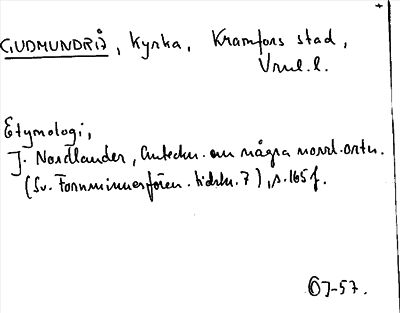 GUDMUNDRÅ, Kyrka, Kramfors stad,
Vrml.l.
Etymologi,
J. Nordlander, Anteckn. om några norrl. ortn.
(Sv. Fornminnesfören. tidskr. 7), s. 165 f.
OJ-57.